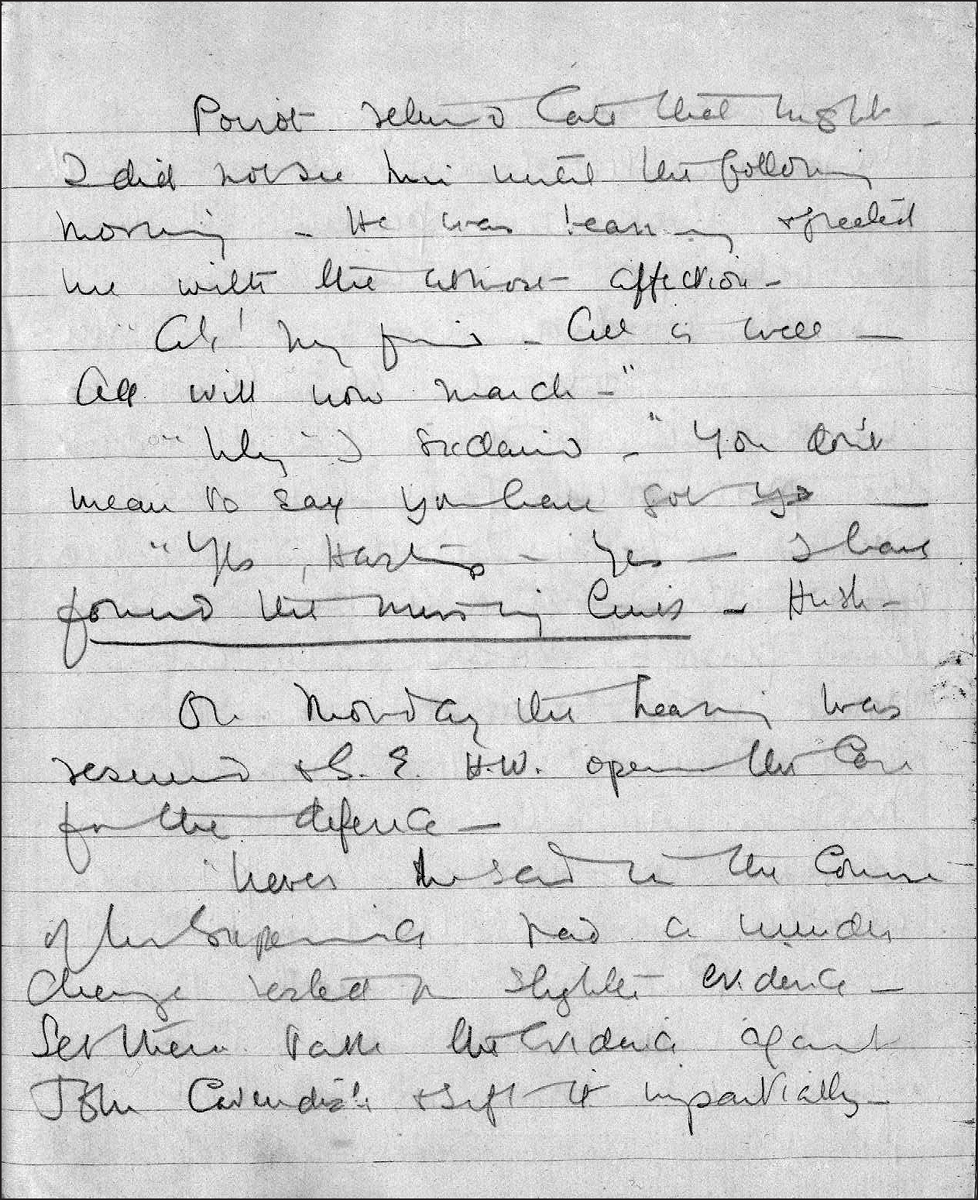 Poirot returned late that night -
I did not see him until the following
morning - He was beaming & greeted
me with the utmost affection -
"Ah! my friend - All is well -
All will now march -"
"Why" I exclaimed - "You don't
mean to say you have got
"Yes, Hastings - Yes - I have
found the missing link - Hush -
On Monday the hearing was
resumed & S. E. H.W. opened the case
for the defence -
"Never he said in the course
of his experience had a murder
charge rested on slighter evidence -
Let them take the evidence against
John Cavendish & sift it impartially -